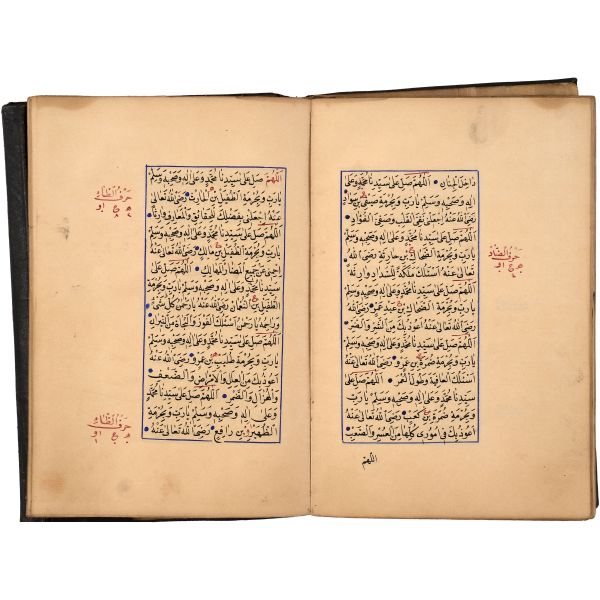 داخل الجنان اللهم صل على سيدنا محمد وعلى
اله وصحبه وسلم يا رب وبحرمة صيفي بن سواد
رضى الله تعالى عنه اجعلنى نقى القلب وصفى الفؤاد
اللهم صل على سيدنا محمد وعلى اله وصحبه وسلم
يا رب وبحرمة الضحاك بن حارثة رضى الله
تعالى عنه اسئلك ملكة للسداد وارثة
اللهم صل على سيدنا محمد وعلى اله وصحبه وسلم
يا رب وبحرمة الضحاك بن عبد عمر رضى الله
تعالى عنه اعوذ بك من الشر والضر
اللهم صل على سيدنا محمد وعلى اله وصحبه وسلم
يا رب وبحرمة ضمرة بن عمرو رضى الله تعالى عنه
اسئلك العافية وطول العمر اللهم صل على
سيدنا محمد وعلى اله وصحبه وسلم يا رب
وبحرمة ضمرة بن كعب رضى الله تعالى عنه
اعوذ بك فى امورى كلها من العسر والصعب
حرف الضاد
اللهم
اللهم صل على سيدنا محمد وعلى اله وصحبه وسلم
يا رب وبحرمة الطفيل بن الحارث رضى الله تعالى
عنه اجعلنى بفضلك للحقائق والمعارف وارثا
اللهم صل على سيدنا محمد وعلى اله وصحبه وسلم
يا رب وبحرمة الطفيل بن مالك رضى الله تعالى عنه
احمنى عن جميع المضار المهالك اللهم صل على
سيدنا محمد وعلى اله وصحبه وسلم يا رب وبحرمة
الطفيل بن النعمان رضى الله عنه يا رحمن كل شئ
وراحمه يا رحمن اسئلك الفوز والنجاة من النيران
اللهم صل على سيدنا محمد وعلى اله وصحبه وسلم
يا رب وبحرمة طليب بن عمرو رضى الله تعالى عنه
اعوذ بك من العلل والامراض والضعف
والهزال والضر اللهم صل على سيدنا محمد
وعلى اله وصحبه وسلم يا رب وبحرمة
الظهير بن رافع رضى الله تعالى عنه
حرف الطاء
حرف الظاء